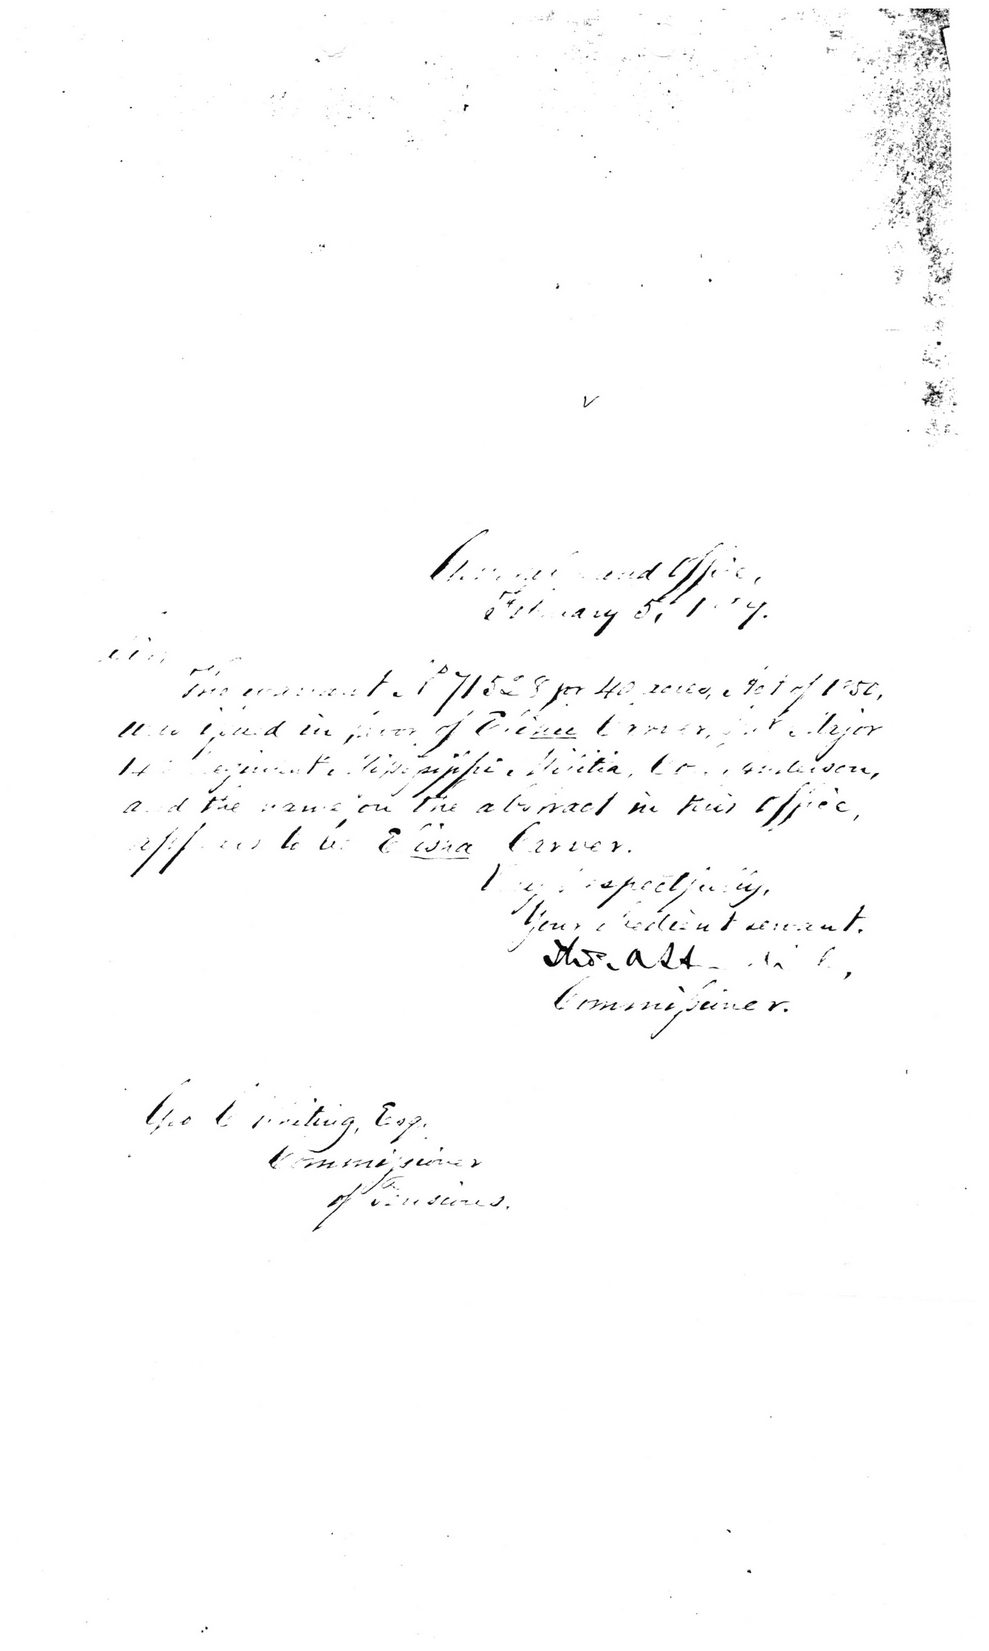 General Land Office,
February 5, 1
Sir
The warrant No 71528 for 40 acres, Act of 1850,
was issued in favor of Carver, Major
Regiment Mississippi Militia, Col. Anderson,
and the name on the abstract in this Office,
appears to be Elisha Carver.
Very Respectfully,
Your obedient servant.
Thos. A.
Commissioner.
Geo C Whiting, Esq.
Commissioner
of Pensions.